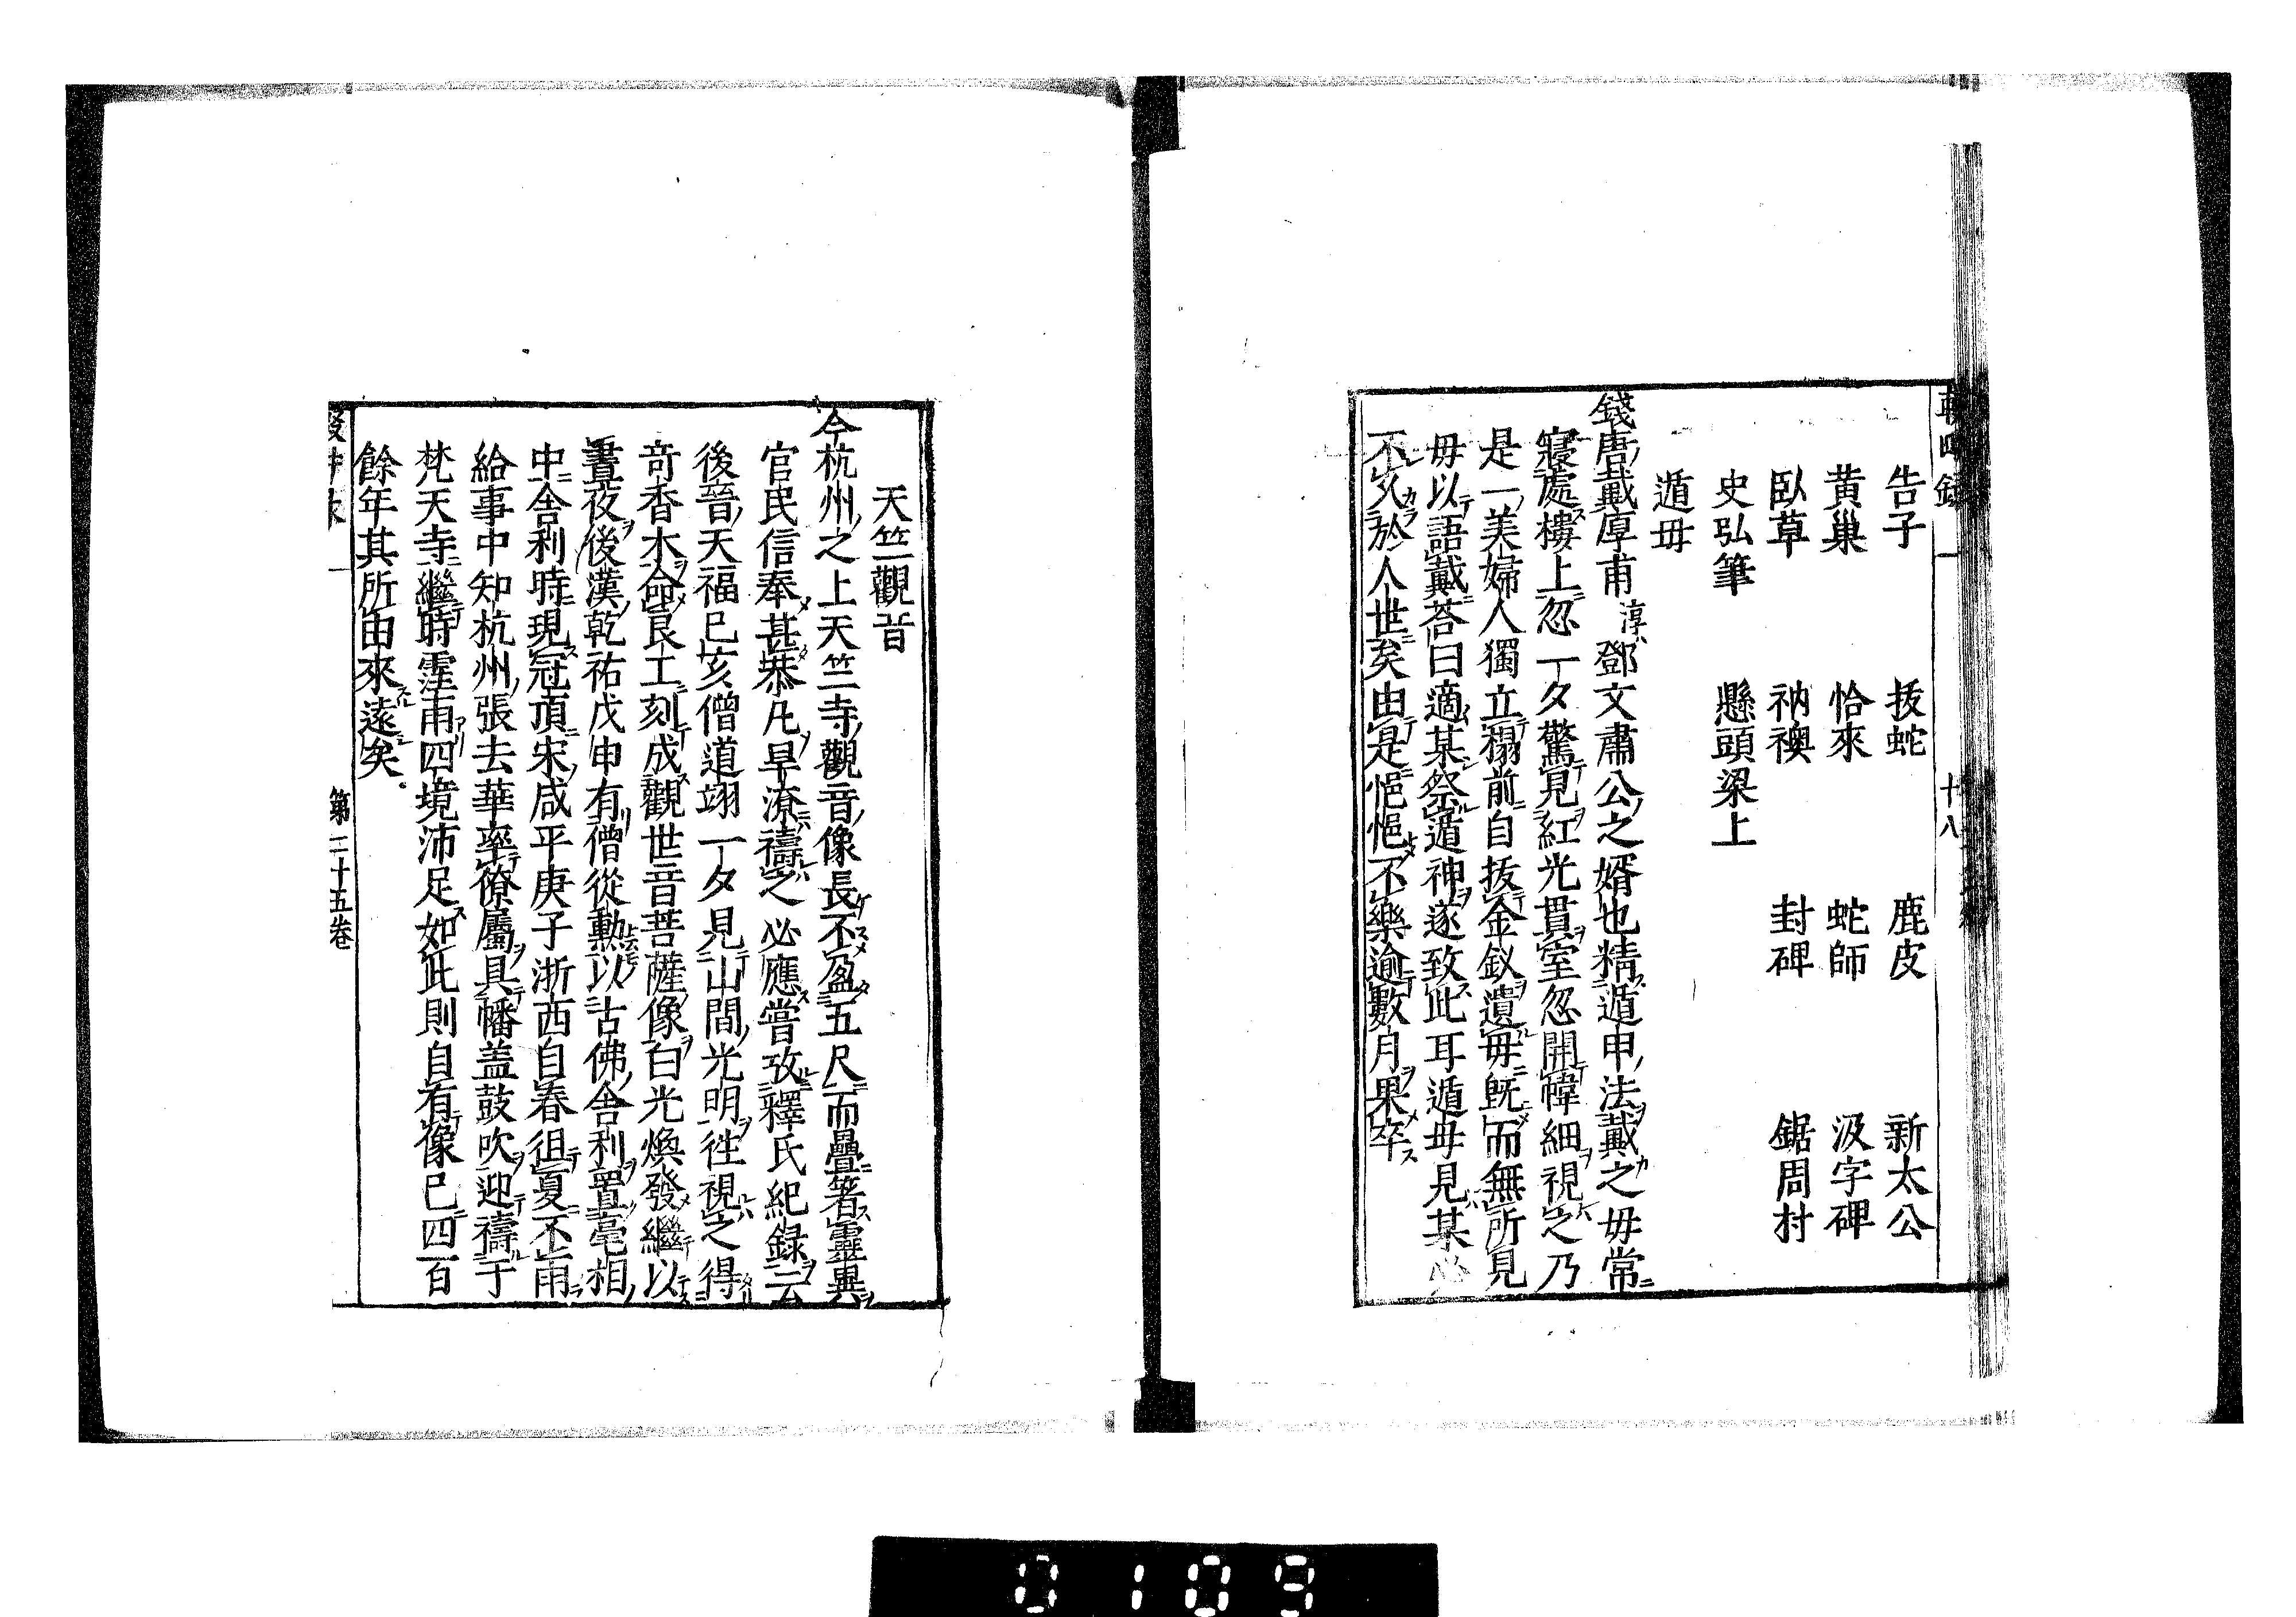 告子　抜蛇　鹿皮　新太公
黄巢　恰來　蛇師　汲字碑
臥草　衲襖　封碑　鋸周村
史弘筆　懸頭梁上
遁毋
錢唐戴厚甫淳鄧文肅公之婿也精遁甲法戴之毋常
寢處樓上忽一夕驚見紅光貫室忽開幃細視之乃
是一美婦人獨立榻前自抜金釵遺毋既而無所見
毋以語戴荅曰適某祭遁神遂致此耳遁毋見某必
不久於人世矣由是悒悒不樂逾數月果卒
十八
天竺觀音
今杭州之上天竺寺觀音像長不盈五尺而疊著靈異
官民信奉甚恭凡旱潦禱之必應嘗攷釋氏紀錄云
後晉天福己亥僧道翊一夕見山間光明徃視之得
奇香木命良工刻成觀世音菩薩像白光煥發繼以
晝夜後漢乾祐戊申有僧從勲以古佛舎利置毫相
中舎利時現冠頂宋咸平庚子浙西自春徂夏不雨
給事中知杭州張去華率僚屬具幡盖鼓吹迎禱于
梵天寺繼時霪雨四境沛足如此則自有像已四百
餘年其所由來遠矣
第二十五巻
0109